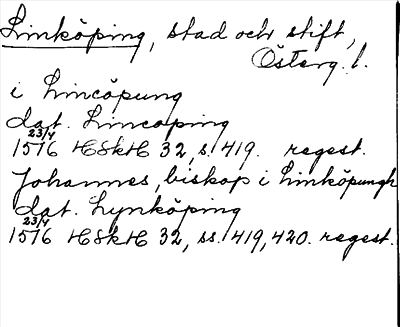 Linköping, stad och stift,
Österg. l.
i Lincöpung
dat. Lincoping
23/4
1516 HSkH 32, s. 419. regest.
Johannes, biskop i Linköpungh
dat. Lynköping
23/4
1516 HSkH 32, ss. 419, 420. regest.